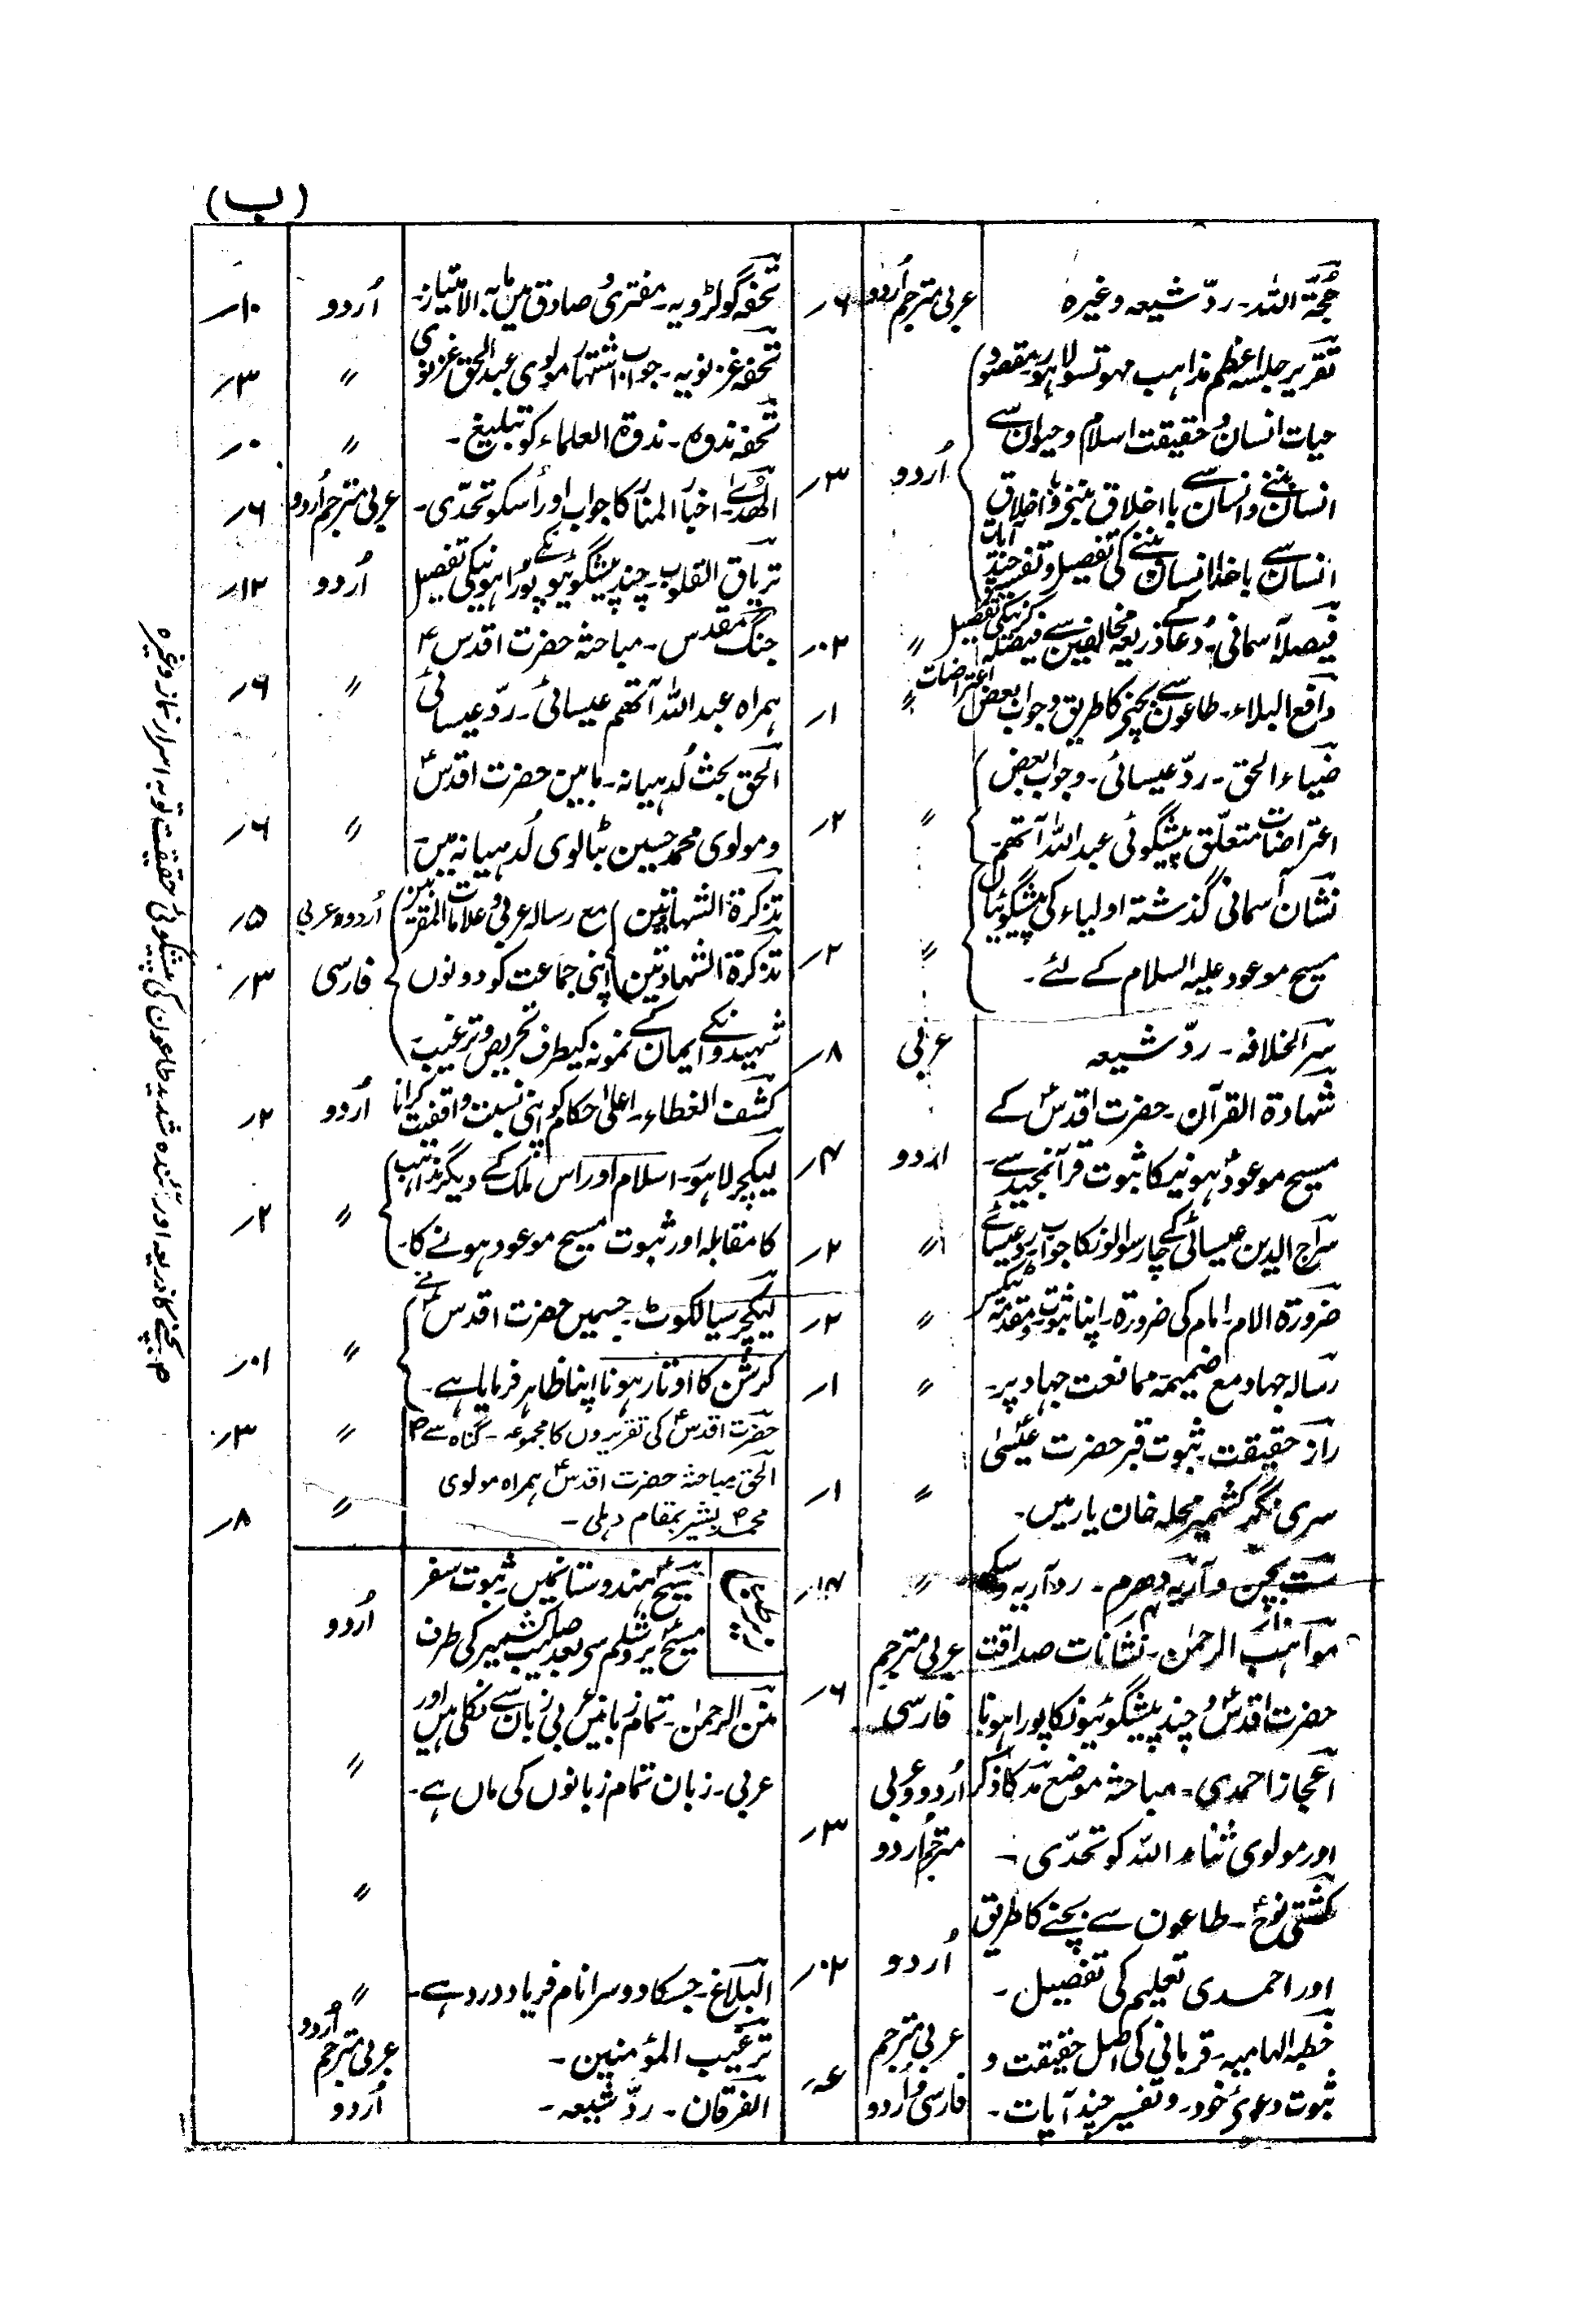 (ب)
حجّۃ اللہ۔ ردّ شیعہ وغیرہ عربی مترجم اُردو ۶؍
تقریر جلسہ اعظم مذاہب مہوتسو لاہور۔ مقصود
حیات انسان و حقیقت اسلام و حیوان سے
انسان بننے و انسان سے بااخلاق بننے و بااخلاق اُردو ۳؍
انسان سے باخدا انسان بننے کی تفصیل و تفسیر چند آیات
فیصلہ آسمانی۔ دُعا کے ذریعہ مخالفین سے فیصلہ کرنیکی تفصیل 〃 ۲؍
دافع البلاء۔ طاعون سے بچنے کا طریق و جواب بعض اعتراضات 〃 ۱؍
ضیاء الحق۔ ردّ عیسائی۔ وجواب بعض
اعتراضات متعلّق پیشگوئی عبداللہ آتھم۔ 〃 ۲؍
نشان آسمانی گذشتہ اولیاء کی پیشگوئیاں
مسیح موعود علیہ السلام کے لئے۔ 〃 ۲؍
سرّ الخلافہ۔ ردّ شیعہ عربی ۸؍
شہادۃ القرآن۔ حضرت اقدسؑ کے
مسیح موعود ہونیکا ثبوت قرآنمجید سے۔ اردو ۴؍
سراج الدین عیسائی کے چار سوالونکا جواب۔ ردّ عیسائے 〃 ۲؍
ضرورۃ الامام۔ امام کی ضرورۃ۔ اپنا ثبوت و مقدمہ ٹیکس 〃 ۲؍
رسالہ جہاد مع ضمیمہ ممانعت جہاد پر۔ 〃 ۱؍
راز حقیقت۔ ثبوت قبر حضرت عیسیٰ
سری نگر کشمیر محلہ خان یار میں۔ 〃 ۱؍
ست بچن و آریہ دھرم۔ رد آریہ وسکھ 〃 ۱۴؍
مواہب الرحمٰن۔ نشانات صداقت عربی مترجم
حضرت اقدسؑ و چند پیشگوئیونکا پورا ہونا فارسی ۶؍
اعجاز احمدی۔ مباحثہ موضع مد کا ذکر اُردو و عربی
اور مولوی ثناء اللہ کو تحدّی۔ مترجم اُردو ۳؍
کشتی نوحؑ۔ طاعون سے بچنے کا طریق
اور احمدی تعلیم کی تفصیل۔ اُردو ۲؍
خطبہ الہامیہ۔ قربانی کی اصل حقیقت و عربی مترجم
ثبوت دعویٰ خود۔ و تفسیر چند آیات۔ فارسی و اُردو عہ؍
تحفہ گولڑویہ۔ مفتری و صادق میں مابہ الامتیاز۔ اُردو ۱۰؍
تحفہ غزنویہ۔ جواب اشتہار مولوی عبدالحق غزنوی 〃 ۳؍
تحفہ ندوہ۔ ندوۃ العلماء کو تبلیغ۔ 〃 ۰؍
الھُدیٰ۔ اخبار المنار کا جواب اور اُسکو تحدّی۔ عربی مترجم اُردو ۶؍
تریاق القلوب۔ چند پیشگوئیوں کے پورا ہونیکی تفصیل اُردو ۱۲؍
جنگ مقدس۔ مباحثہ حضرت اقدسؑ
ہمراہ عبداللہ آتھم عیسائی۔ ردّ عیسائی 〃 ۶؍
الحق بحث لُدہیانہ۔ مابین حضرت اقدسؑ
و مولوی محمد حسین بٹالوی لُدہیانہ میں 〃 ۶؍
تذکرۃ الشہادتین مع رسالہ عربی و علامات المقربین اُردو و عربی ۵؍
تذکرۃ الشہادتین اپنی جماعت کو دونوں فارسی ۳؍
شہیدونکے ایمان کے نمونہ کیطرف تحریص و ترغیب
کشف الغطاء۔ اعلیٰ حکام کو اپنی نسبت واقفیت کرانا اُردو ۲؍
لیکچر لاہور۔ اسلام اور اس ملک کے دیگر مذاہب
کا مقابلہ اور ثبوت مسیح موعود ہونے کا۔ 〃 ۲؍
لیکچر سیالکوٹ۔ جسمیں حضرت اقدسؑ نے
کرشن کا اوتار ہونا اپنا ظاہر فرمایا ہے۔ 〃 ۱؍
حضرت اقدسؑ کی تقریروں کا مجموعہ۔ گناہ سے 〃 ۳؍
بچنے کا ذریعہ اور آئندہ شدید طاعون کی پیشگوئی حقیقت توبہ اسرار نماز وغیرہ
الحق مباحثہ حضرت اقدسؑ ہمراہ مولوی
محمد بشیر بمقام دہلی۔ 〃 ۸؍
زیر طبع
مسیح ہندوستانمیں۔ ثبوت سفر
مسیح یروشلم سے بعد صلیب کشمیر کی طرف اُردو
منن الرحمٰن۔ تمام زبانیں عربی زبان سے نکلی ہیں اور
عربی۔ زبان تمام زبانوں کی ماں ہے۔ 〃
〃
البلاغ۔ جسکا دوسرا نام فریاد درد ہے۔ 〃
ترغیب المؤمنین۔ عربی مترجم اُردو
الفرقان۔ ردّ شیعہ۔ اُردو